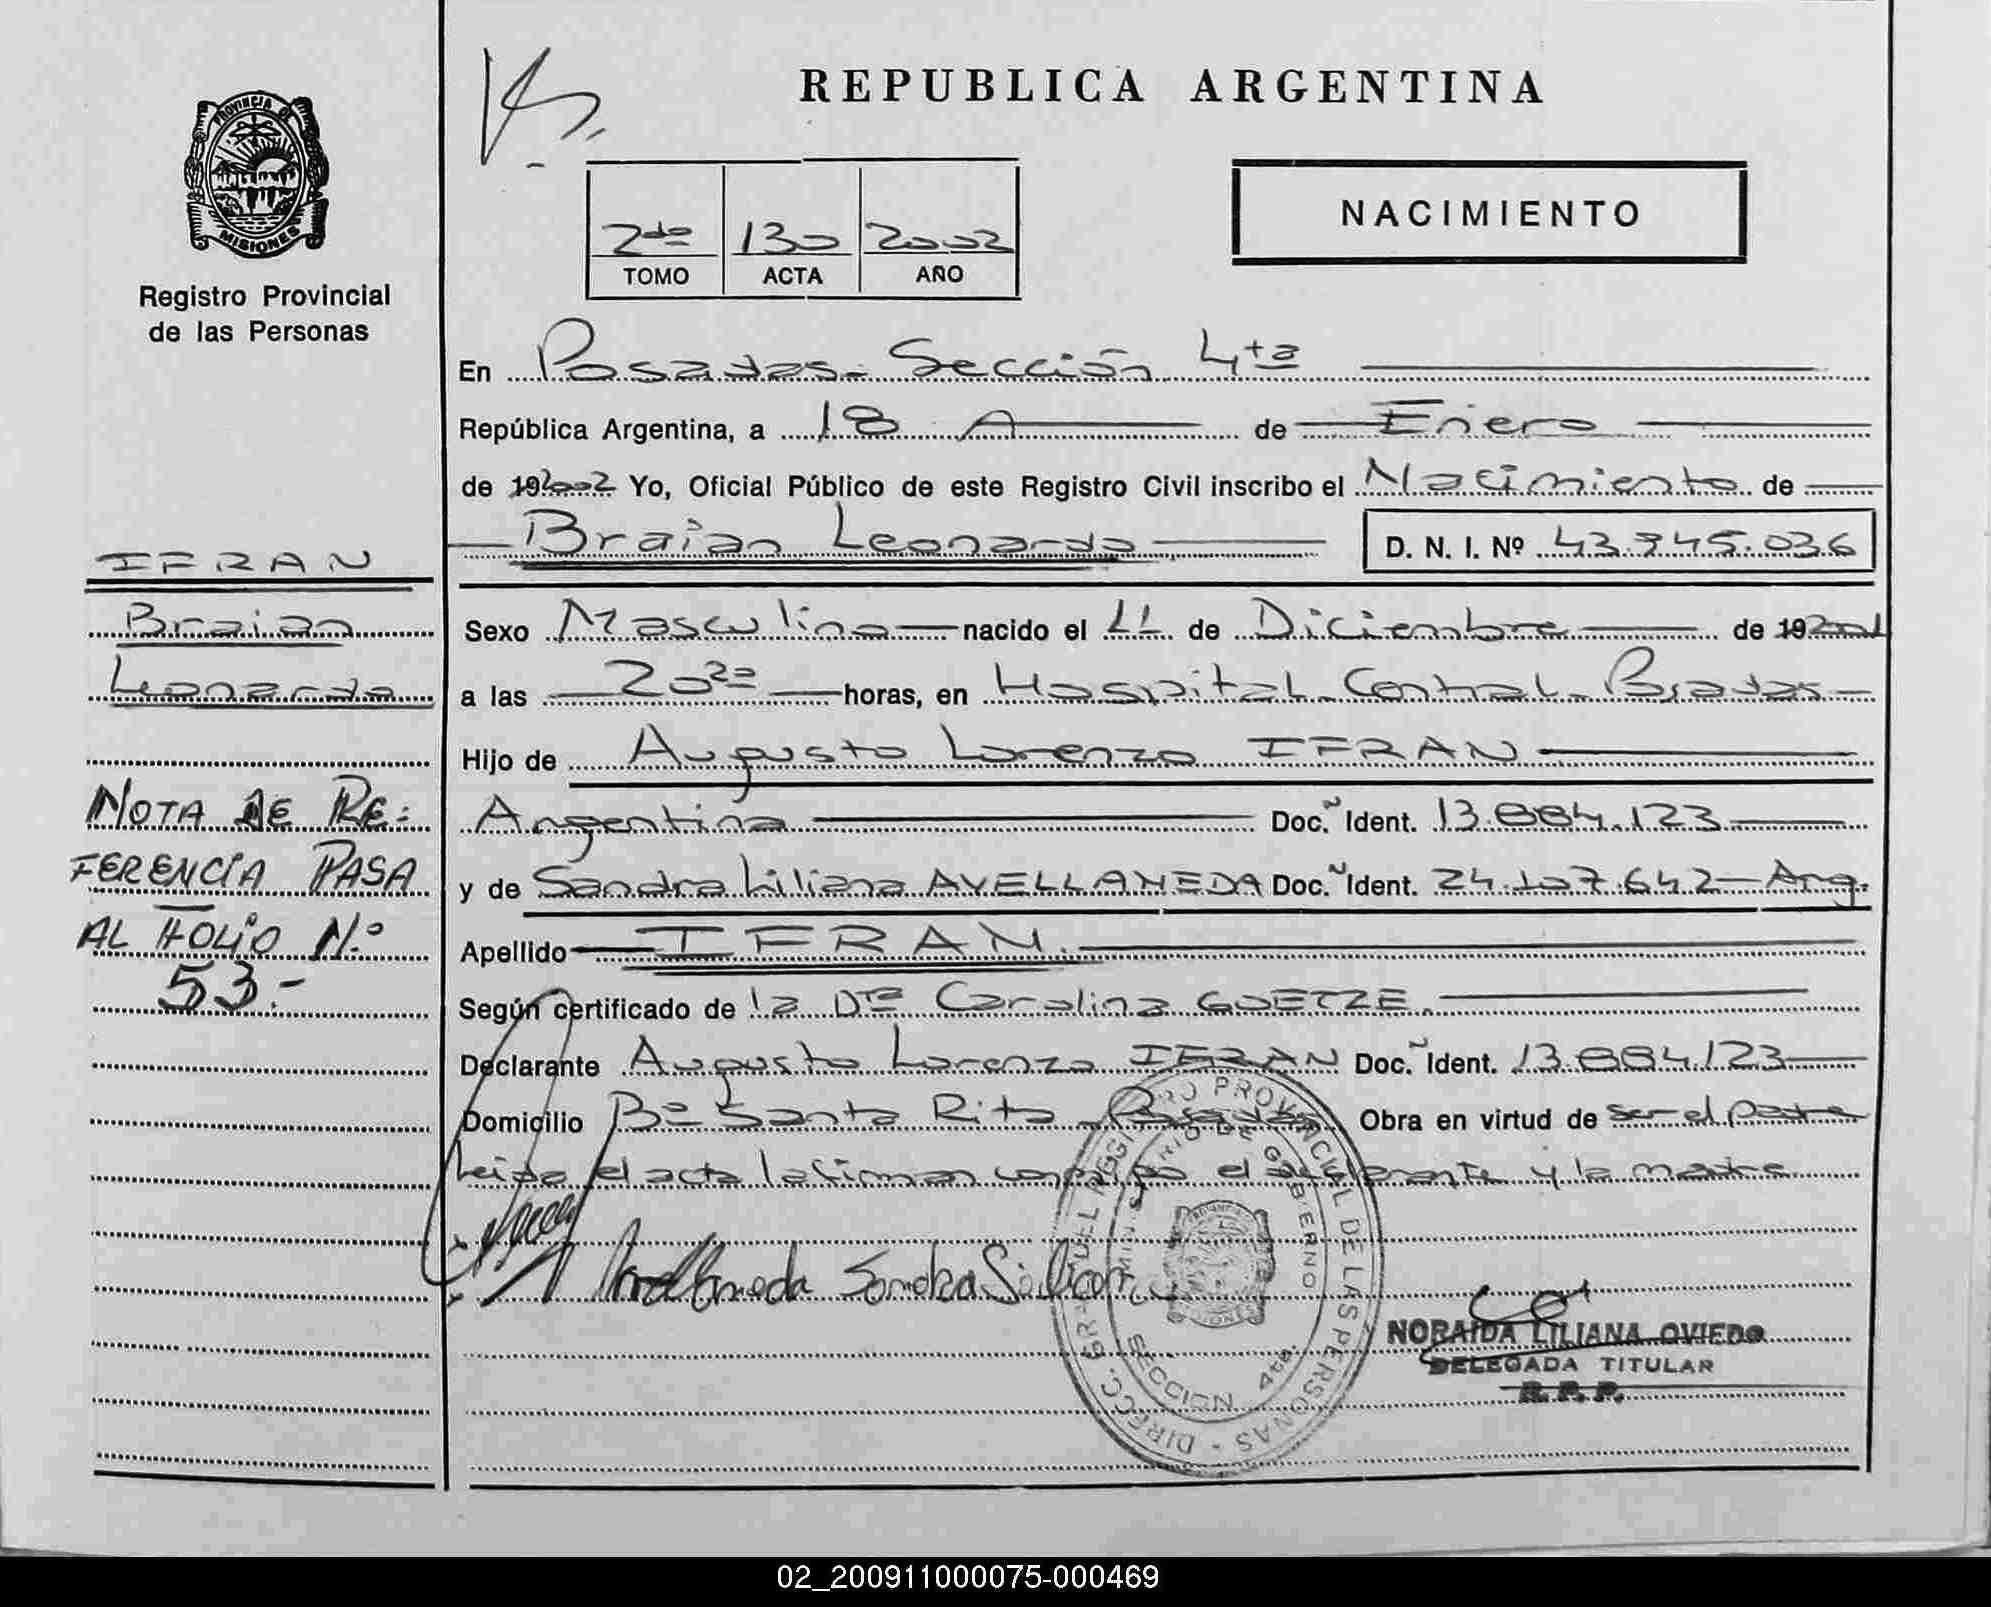 PROVINCIA DE
MISIONES
Registro Provincial
de las Personas
REPUBLICA ARGENTINA
NACIMIENTO
2do 130 2002
TOMO ACTA AÑO
En Posadas - Sección 4ta
República Argentina, a 18 de Enero
de 192002 Yo, Oficial Público de este Registro Civil inscribo el Nacimiento de
Braian Leonardo D. N. I. Nº 43.745.036
IFRAN
Braian
Leonardo
NOTA DE RE=
FERENCIA PASA
AL FOLIO N.º
53.-
Sexo Masculino nacido el 11 de Diciembre de 192001
a las 20 horas, en Hospital Central - Posadas
Hijo de Augusto Lorenzo IFRAN
Argentina Doc. Ident. 13.884.123
y de Sandra Liliana AVELLANEDA Doc. Ident. 24.107.642 - Arg.
Apellido IFRAN.
Según certificado de la Dra Carolina GOETZE.
Declarante Augusto Lorenzo IFRAN Doc. Ident. 13.884.123
Domicilio Bº Santa Rita - Posadas Obra en virtud de ser el padre
Leida el acta la firman conmigo el declarante y la madre
Avellaneda Sandra
DIRECC. GRAL. DEL REGISTRO PROVINCIAL DE LAS PERSONAS -
MINISTERIO DE GOBIERNO
SECCION 4ta.
NORAIDA LILIANA OVIEDO
DELEGADA TITULAR
R. P. P.
02_200911000075-000469